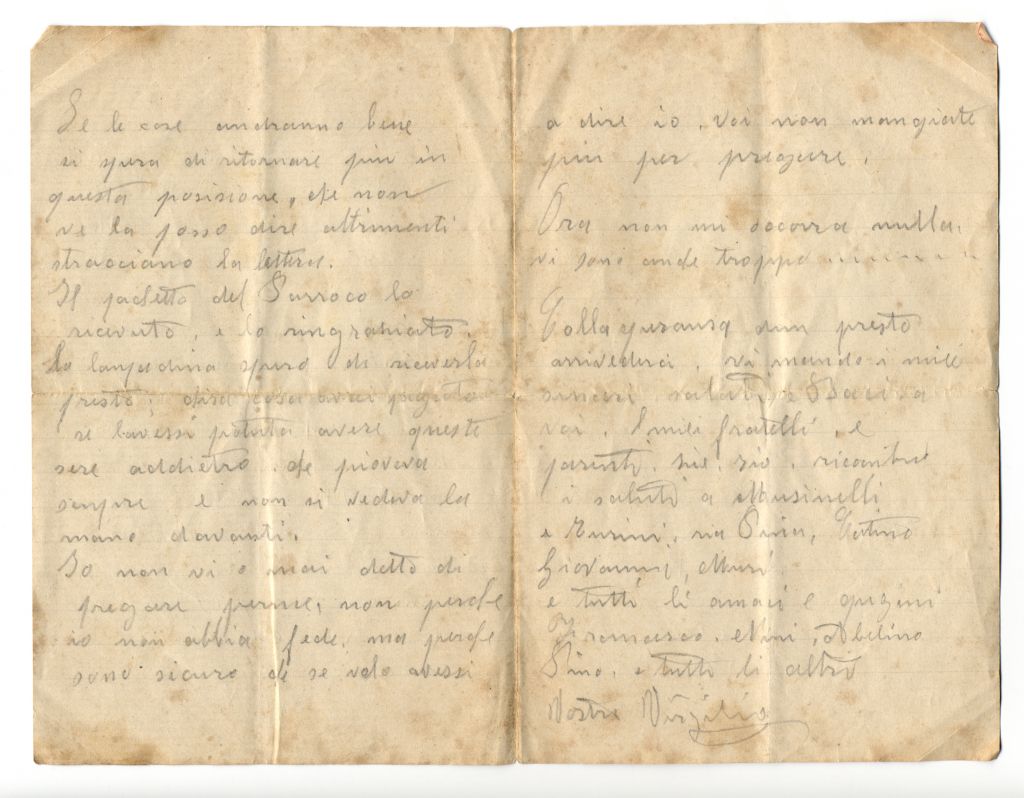 Se le cose andranno bene
si spera di ritornare più in
questa posisione, che non
ve la posso dire altrimenti
stracciano la lettera.
Il pachetto del Parroco lo
ricevuto, e lo ringrahiato.
la lanpadina spero di riceverla
presto, chisa cosa avrei pagato
se lavessi potuta avere queste
sere addietro. che pioveva
senpre e non si vedeva la
mano davanti.
Io non vi o mai detto di
pregare perme, non perche
io non abbia fede, ma perche
sono sicuro che se velo avessi
a dire io, voi non mangiate
più per pregare.
Ora non mi occorra nulla,
vi sono anche troppo
Colla speransa dun presto
arrivederci, vi mando i miei
sinceri saluti e Baci a
voi, I miei fratelli, e
parenti, zie, zio, ricanbio
i saluti a Musinelli
e Turini, zia Pina,
Giovanni, Mari,
e tutti li amici e qugini
Francesco, Nini, Abelino
Pino, e tutti li altri
Vostro Virgilio